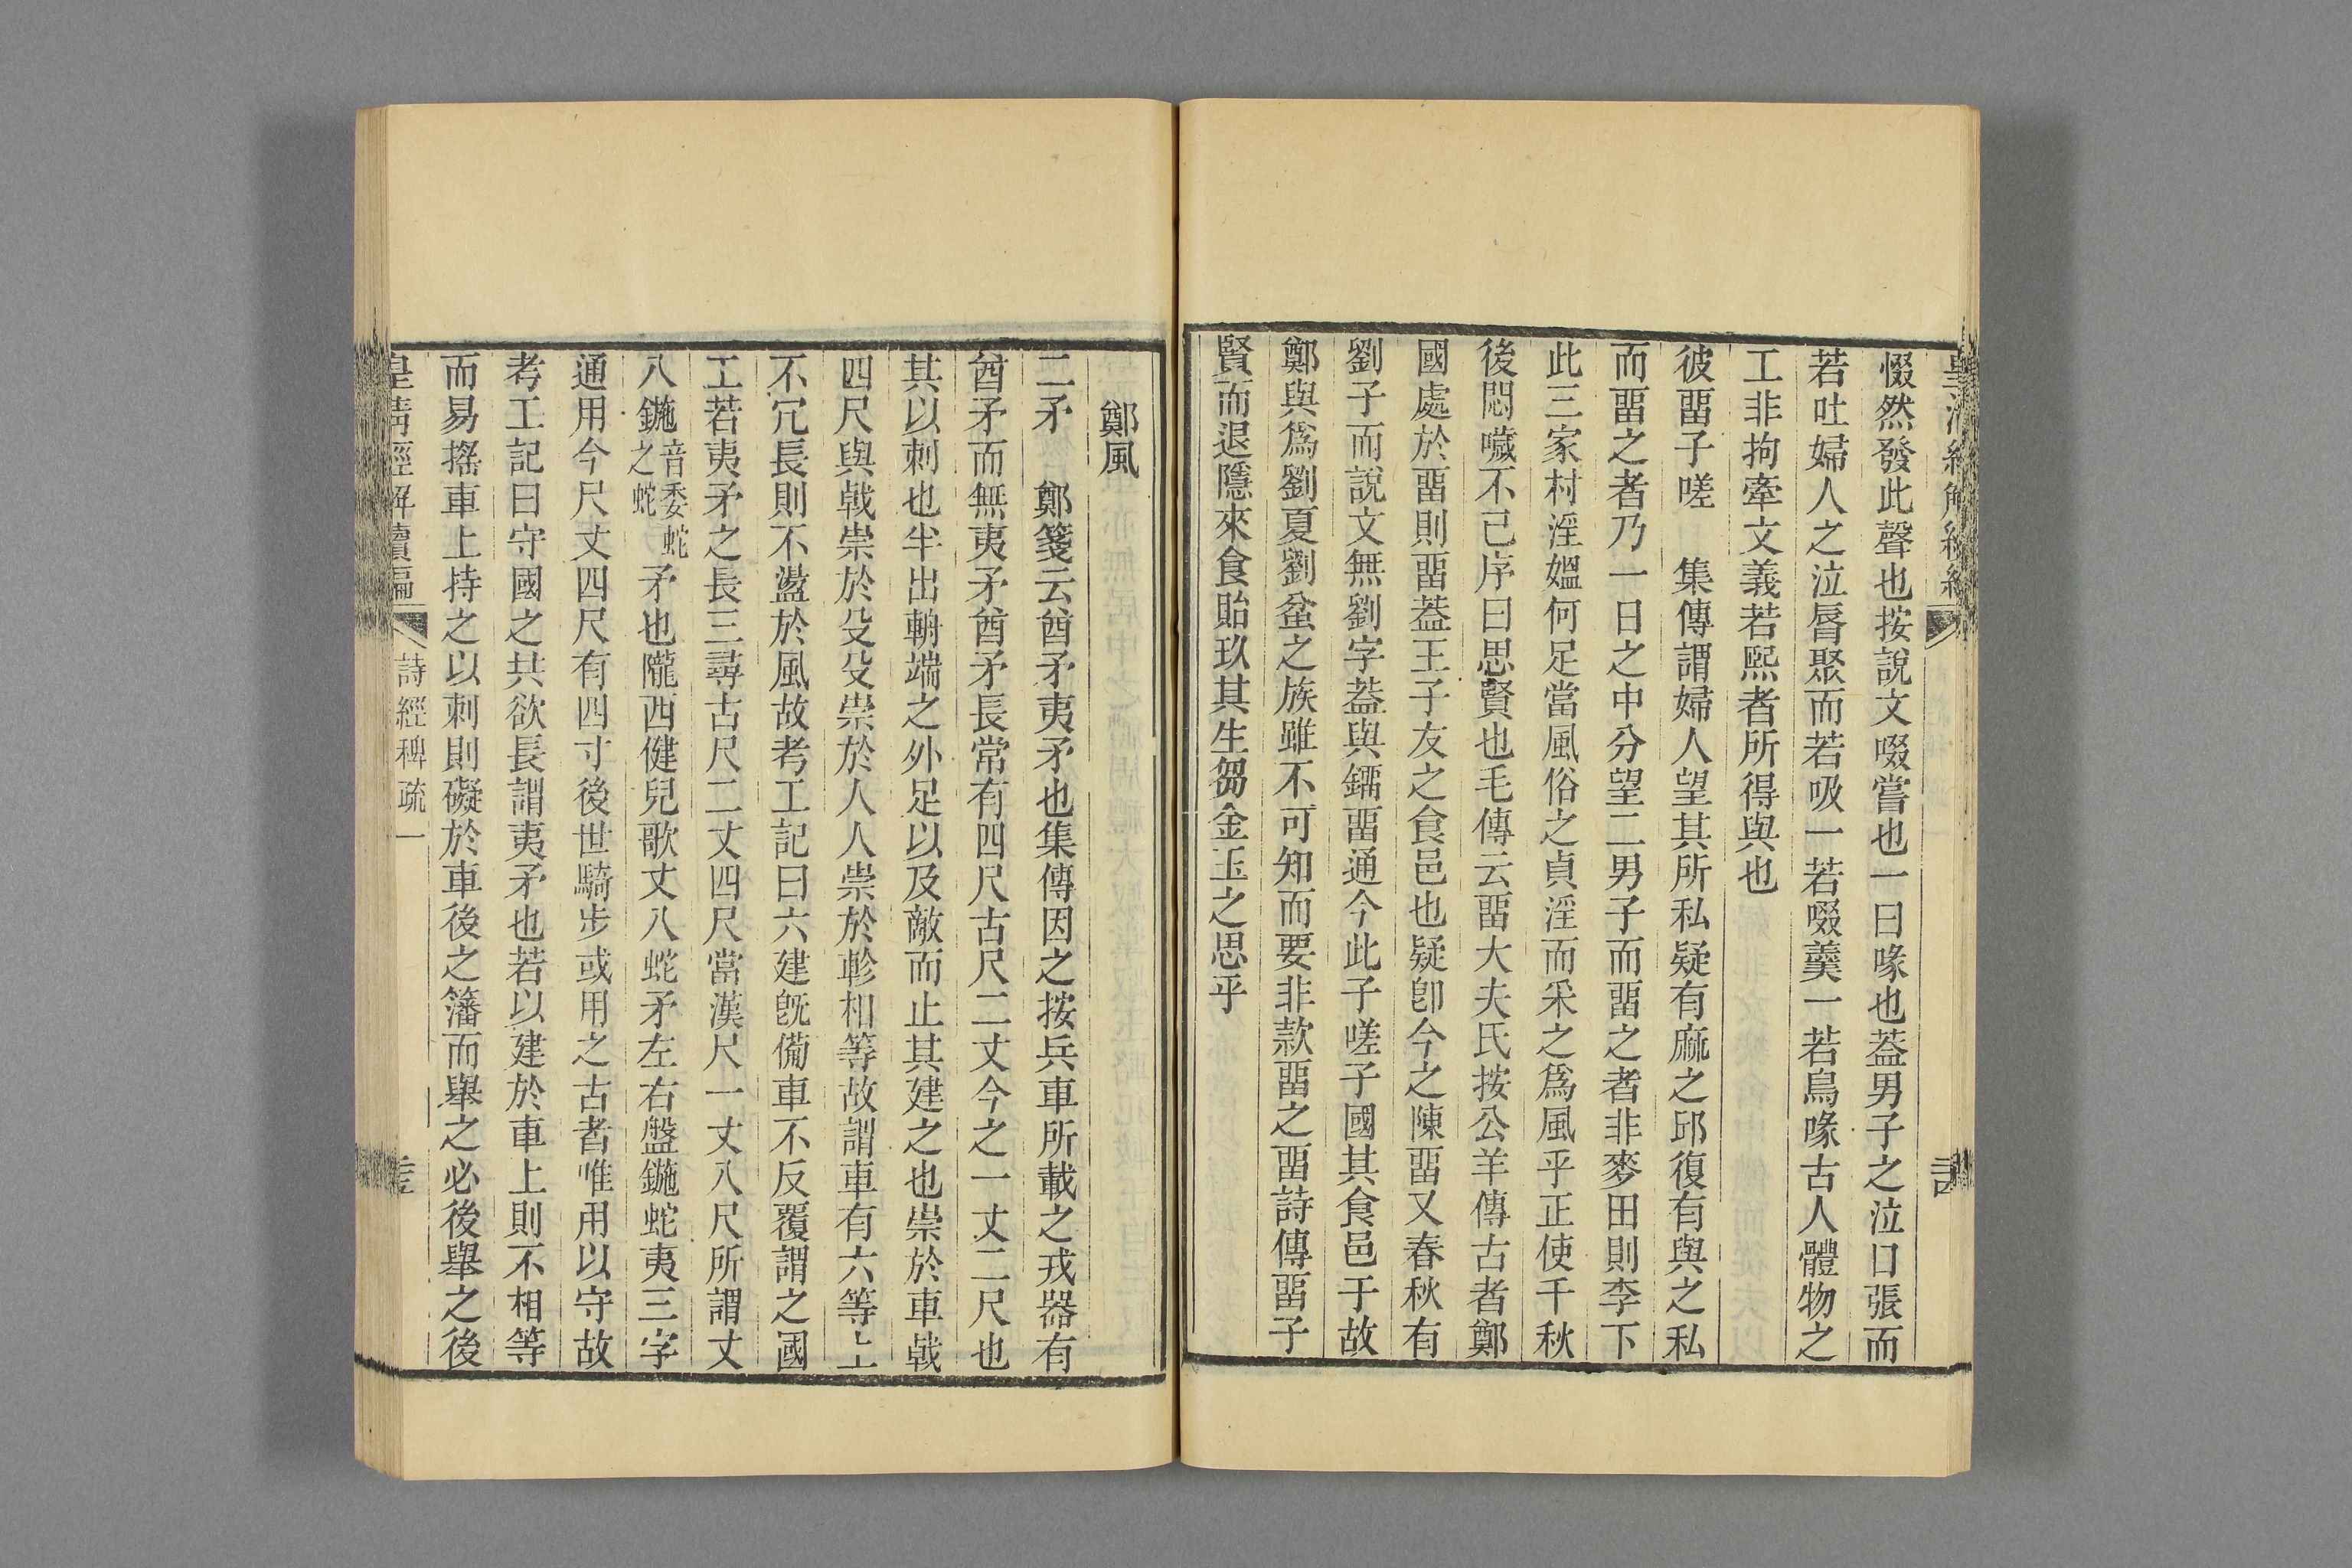 惙然發此聲也按說文啜嘗也一曰喙也葢男子之泣口張而
若吐婦人之泣唇聚而若吸一若啜羹一若鳥喙古人體物之
工非拘牽文義若熙者所得與也
彼畱子嗟　集傳謂婦人望其所私疑有麻之邱復有與之私
而畱之者乃一日之中分望二男子而畱之者非麥田則李下
此三家村淫媼何足當風俗之貞淫而采之爲風乎正使千秋
後悶噦不已序曰思賢也毛傳云畱大夫氏按公羊傳古者鄭
國處於畱則畱葢王子友之食邑也疑卽今之陳畱又春秋有
劉子而說文無劉字葢與鐂畱通今此子嗟子國其食邑于故
鄭與爲劉夏劉盆之族雖不可知而要非款畱之畱詩傳畱子
賢而退隱來食貽玖其生芻金玉之思乎
鄭風
二矛　鄭箋云酋矛夷矛也集傳因之按兵車所載之戎器有
酋矛而無夷矛酋矛長常有四尺古尺二丈今之一丈二尺也
其以刺也半出輈端之外足以及敵而止其建之也崇於車戟
四尺與戟崇於殳殳崇於人人崇於軫相等故謂車有六等上
不冗長則不盪於風故考工記曰六建旣備車不反覆謂之國
工若夷矛之長三尋古尺二丈四尺當漢尺一丈八尺所謂丈
八鍦音委蛇之蛇矛也隴西健兒歌丈八蛇矛左右盤鍦蛇夷三字
通用今尺丈四尺有四寸後世騎步或用之古者惟用以守故
考工記曰守國之兵欲長謂夷矛也若以建於車上則不相等
而易搖車上持之以刺則礙於車後之籓而舉之必後舉之後
皇淸經解續編
詩經稗疏一